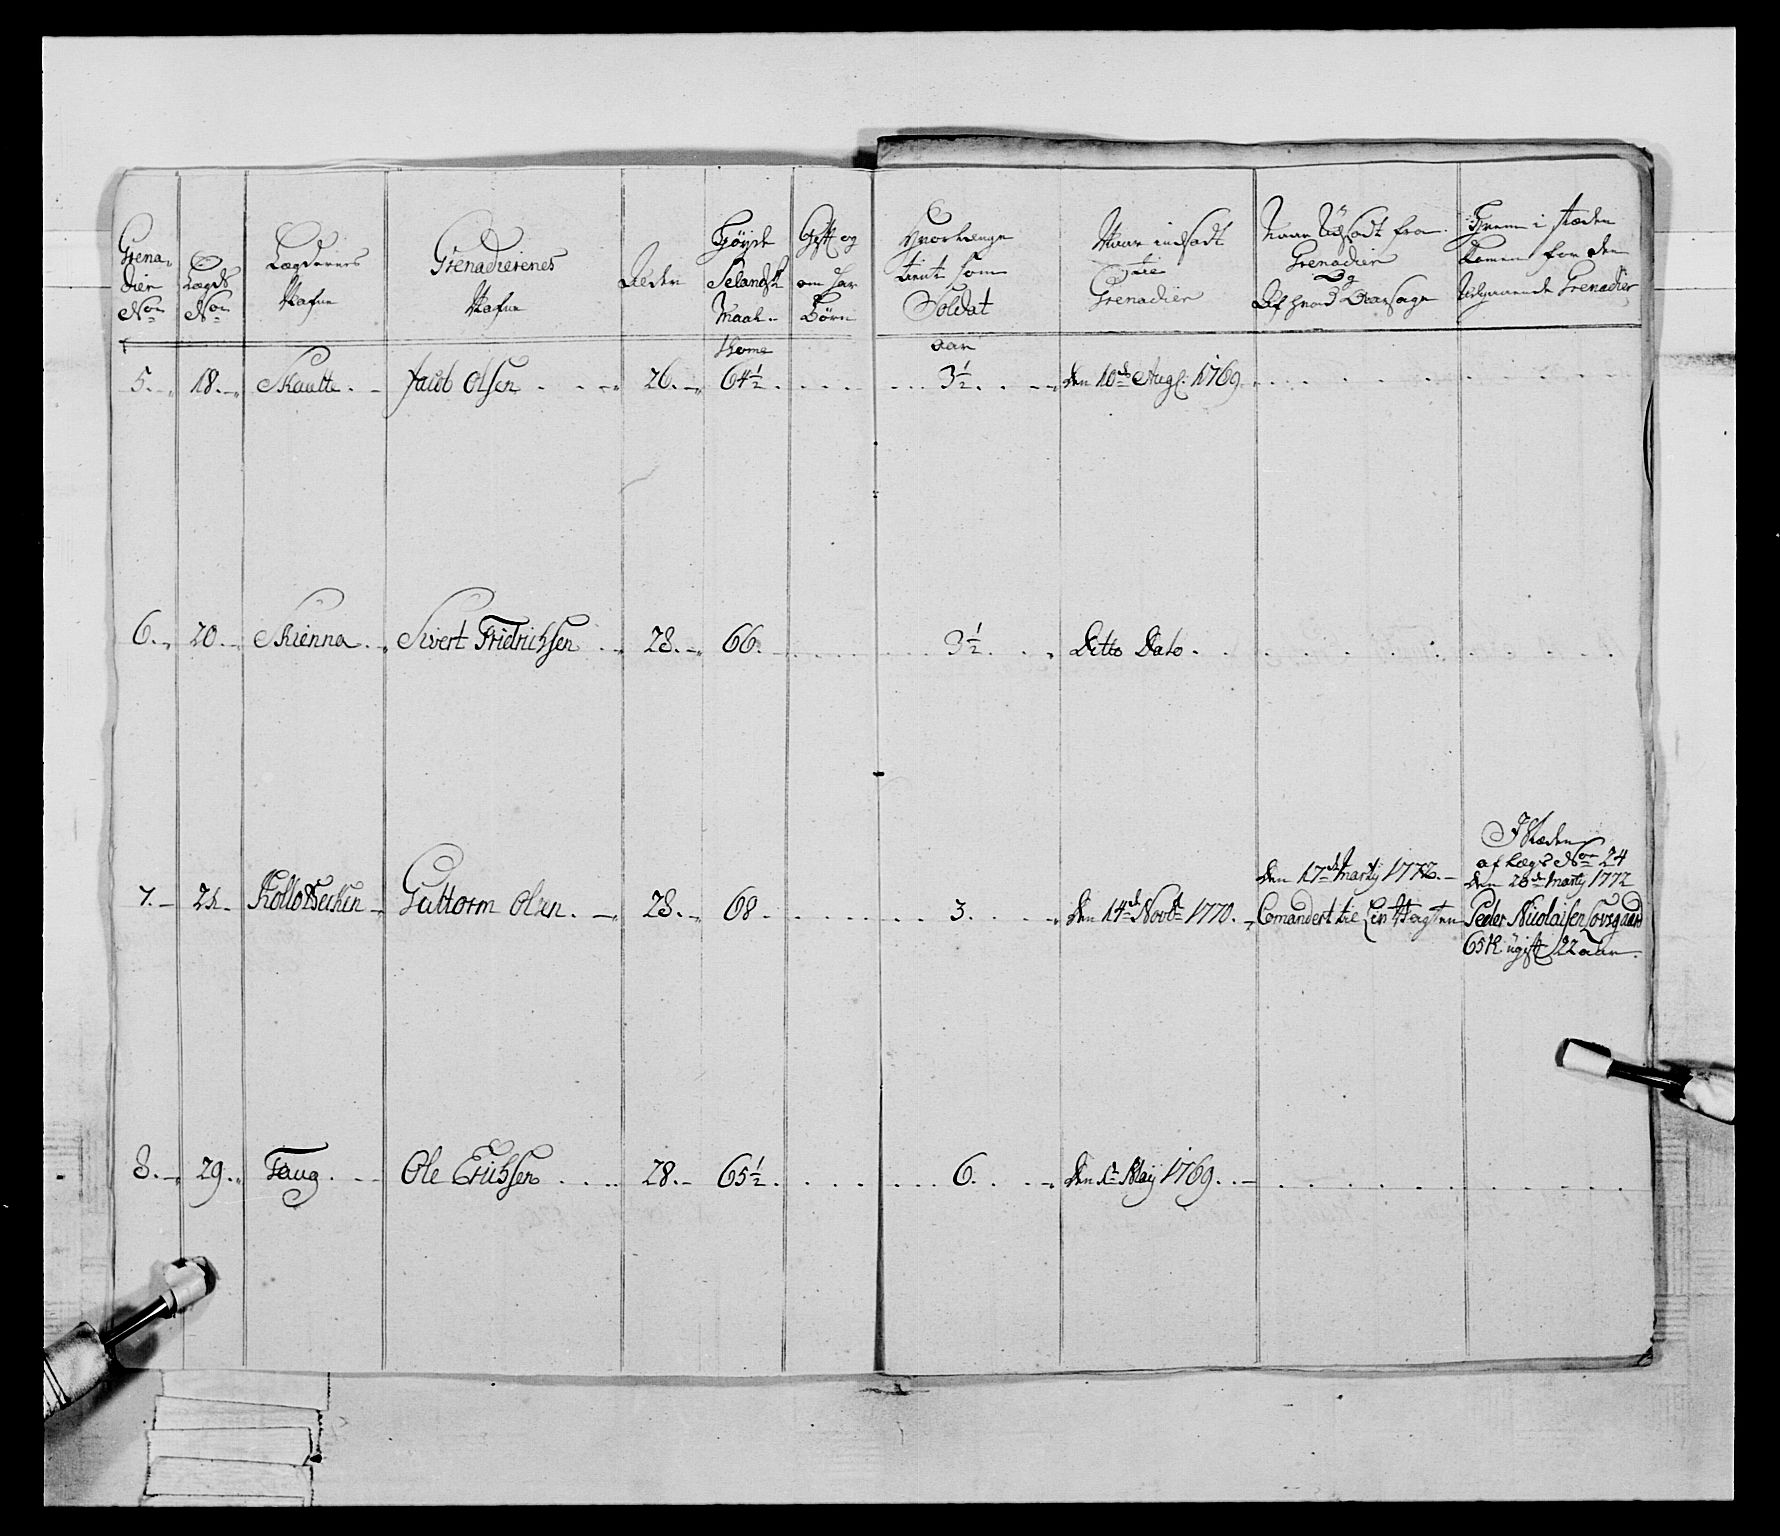 Grena-
dier
No
Lægds
No
Lægdernes
Nafne
Grenadierenes
Nafne
Alder
Høyde
Selandsk
Maal
Gift og
om har
Børn
Hvorlænge
tient som
Soldat
Naar indsadt
til
Grenadier
Naar Udsadt fra
Grenadier
Og
Af hvad Aarsage
Hvem i stæden
komen for den
Udgaaende Grenadier
Tomme
aar
5. 18. Skautte Jacob Olsen 26. 64½ 3½ den 10de Aug. 1769
6. 20. Skienna Sivert Fridrichsen 28. 66. 3½ Ditto Dato
7. Guttorm Olsen 28. 68 3. den 14de Novbr 1770.
den 17de Marty 1772.
Comandert til Liv Vagten
I Stæden
af Lægs No 24
den 28de Marty 1772
Peder Nicolaisen
65 ugift 22 aar
8. 29. Haug Ole Erichsen 28. 65½ 6. den Maij 1769.